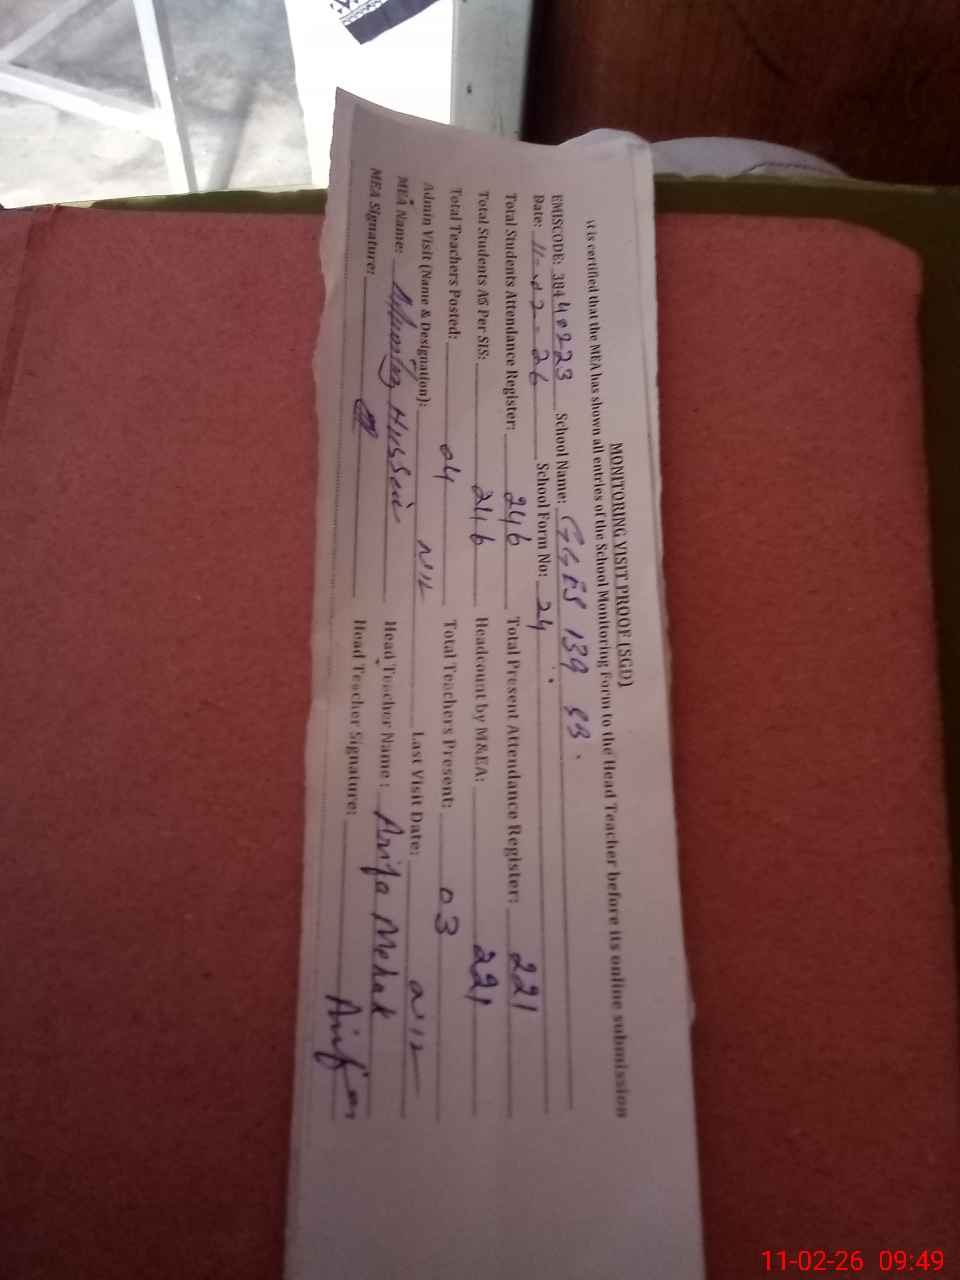 MONITORING VISIT PROOF (SGD)
It is certified that the MEA has shown all entries of the School Monitoring Form to the Head Teacher before its online submission
EMISCODE: 38440223 School Name: GGES 139 SB.
Date: 11-02-26 School Form No: 24
Total Students Attendance Register: 246 Total Present Attendance Register: 221
Total Students As Per SIS: 246 Headcount by M&EA: 221
Total Teachers Posted: 04 Total Teachers Present: 03
Admin Visit (Name & Designation): NIL Last Visit Date: NIL
MEA Name: Hussain Head Teacher Name: Arifa Mehak
MEA Signature: Head Teacher Signature:
11-02-26 09:49